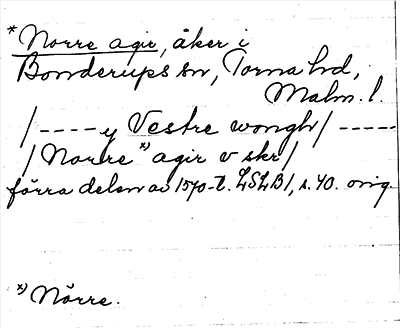 * Norre agir, åker i
Bonderups sn, Torna hd,
Malm. l.
/ - - - - y Vestre wongh / - - - - -
/ Norre *) agir v skr /
förra delen av 1570-t. LSLB 1, s. 40. orig.
*) Nörre.